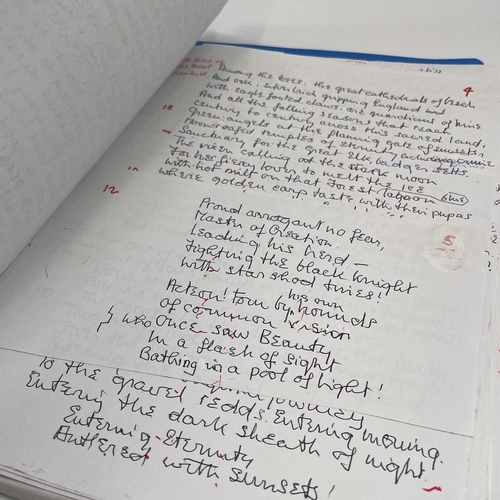 4
Among the trees: the great cathedrals of
And oak, silver birch gripping England and
with eagle footed claws, are guardians of time
And all the falling seasons that reach
Century to century across this sacred land,
Green angels at the flaming gate of sunsets,
Moonroofed temples of eternity
Sanctuary for the great Elk, badger setts.
The vixen calling out the stark moon
For her fiery lover to melt the ice
with hot milk on that forest lagoon
where golden carp taste with their pupas
12
5
Proud arrogant no fear,
Master of Creation
Leading his herd –
Fighting the black knight
with star shod tines!
his own
Acteon! torn by hounds
of common vision
who once saw Beauty
In a flash of sight
Bathing in a pool of light!
journey
To the gravel redds, entering
Entering the dark sheath of night
Entering Eternity
Antlered with sunsets!